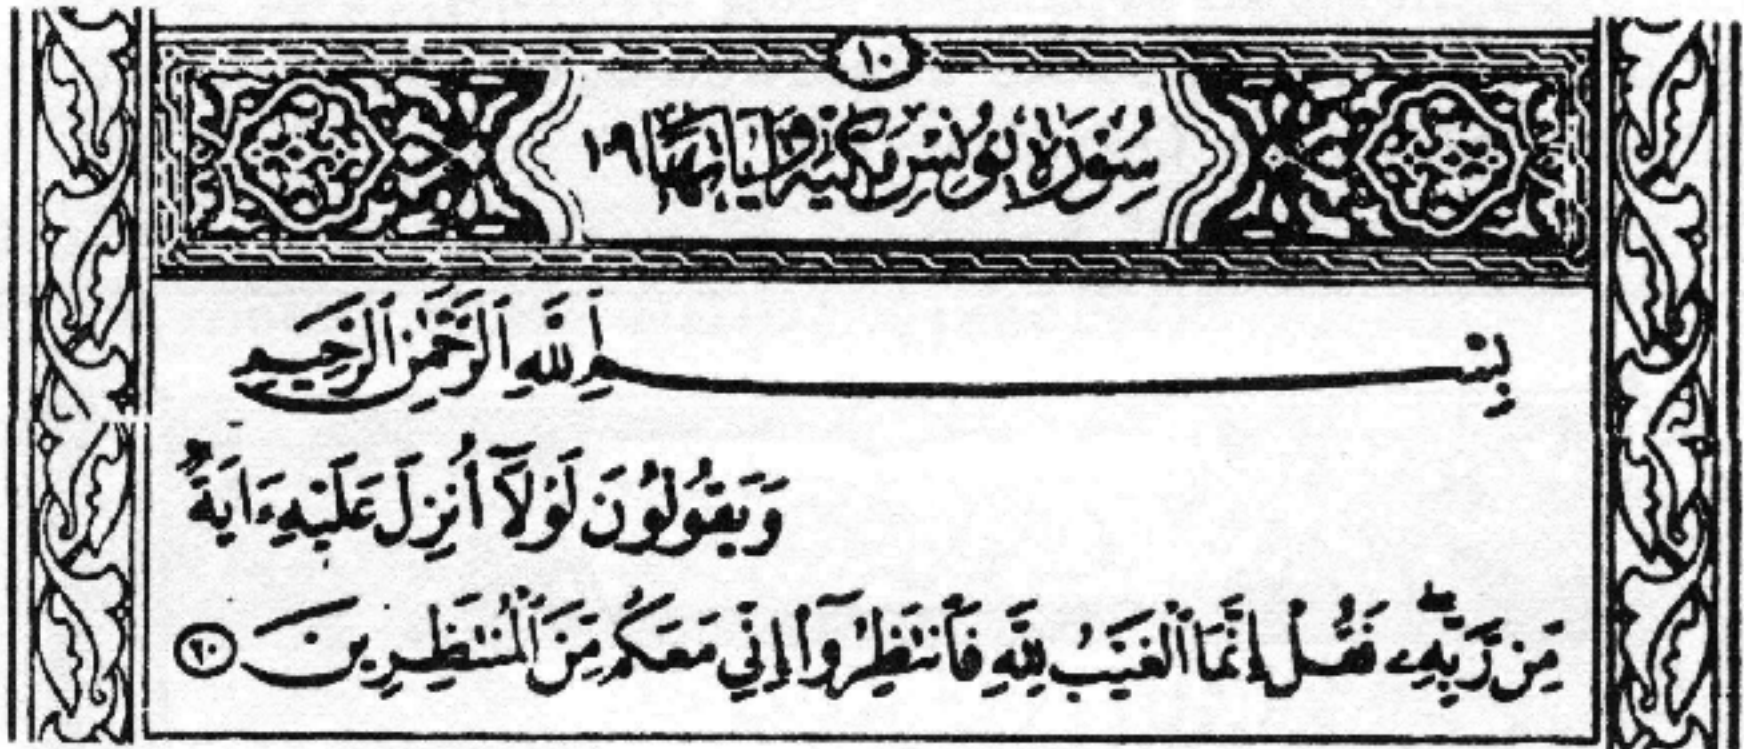 ١٠
سُورَةُ يُونُسَ مَكِّيَّةٌ وَآيَاتُهَا ١٠٩
بِسْمِ ٱللَّهِ ٱلرَّحْمَٰنِ ٱلرَّحِيمِ
وَيَقُولُونَ لَوْلَآ أُنزِلَ عَلَيْهِ ءَايَةٌ
مِّن رَّبِّهِۦ فَقُلْ إِنَّمَا ٱلْغَيْبُ لِلَّهِ فَٱنتَظِرُوٓا۟ إِنِّي مَعَكُم مِّنَ ٱلْمُنتَظِرِينَ ٢٠